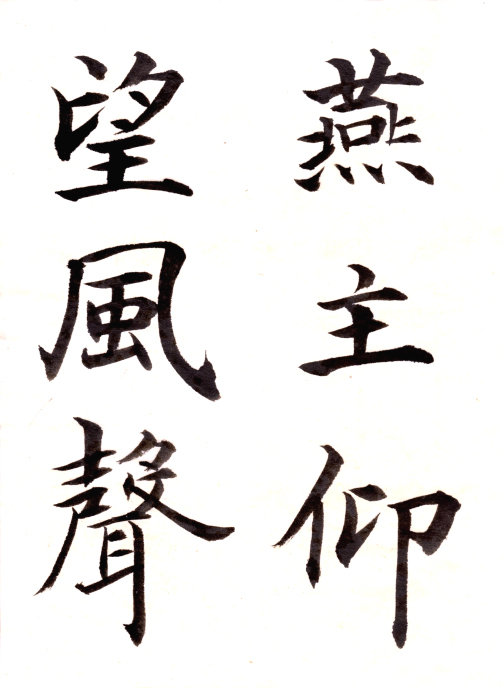 燕主仰
望風聲